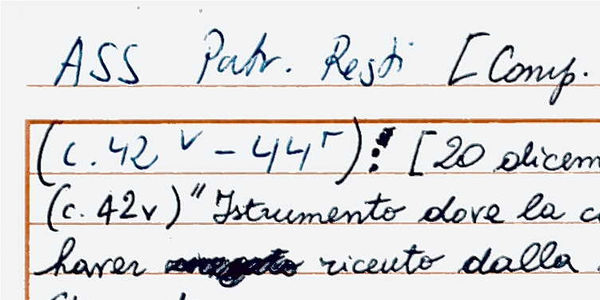 ASS Patr. Resti [Comp.
(c. 42 v - 44 r): [20 dicem
(c. 42v) "Istrumento dove la c
haver riceuto dalla